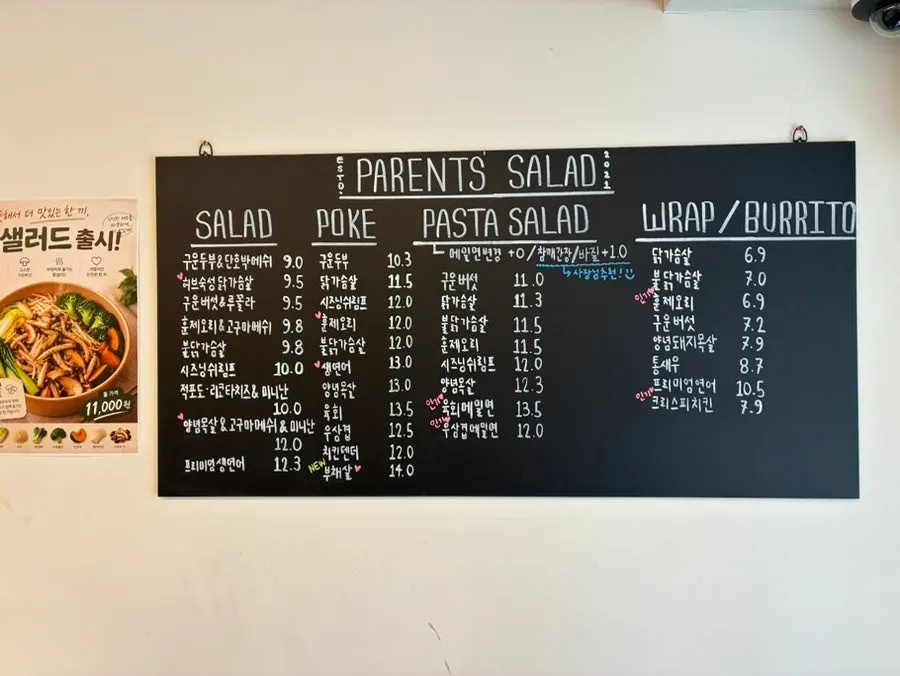 ESTD. PARENTS' SALAD 2021
SALAD
구운두부&단호박메쉬 9.0
허브숙성 닭가슴살 9.5
구운버섯&루꼴라 9.5
훈제오리&고구마메쉬 9.8
불닭가슴살 9.8
시즈닝쉬림프 10.0
적포도·리코타치즈&미니난
10.0
양념목살&고구마메쉬&미니난
12.0
프리미엄생연어 12.3
POKE
구운두부 10.3
닭가슴살 11.5
시즈닝쉬림프 12.0
훈제오리 12.0
불닭가슴살 12.0
생연어 13.0
양념목살 13.0
육회 13.5
우삼겹 12.5
치킨텐더 12.0
NEW 부채살 14.0
PASTA SALAD
메밀면변경 +0 / 참깨간장/바질+1.0
사장님추천!
구운버섯 11.0
닭가슴살 11.3
불닭가슴살 11.5
훈제오리 11.5
시즈닝쉬림프 12.0
양념목살 12.3
인기 육회메밀면 13.5
인기 우삼겹메밀면 12.0
WRAP/BURRITO
닭가슴살 6.9
불닭가슴살 7.0
인기 훈제오리 6.9
구운버섯 7.2
양념돼지목살 7.9
통새우 8.7
프리미엄연어 10.5
인기 크리스피치킨 7.9
더 맛있는 한 끼,
샐러드 출시!
11,000원